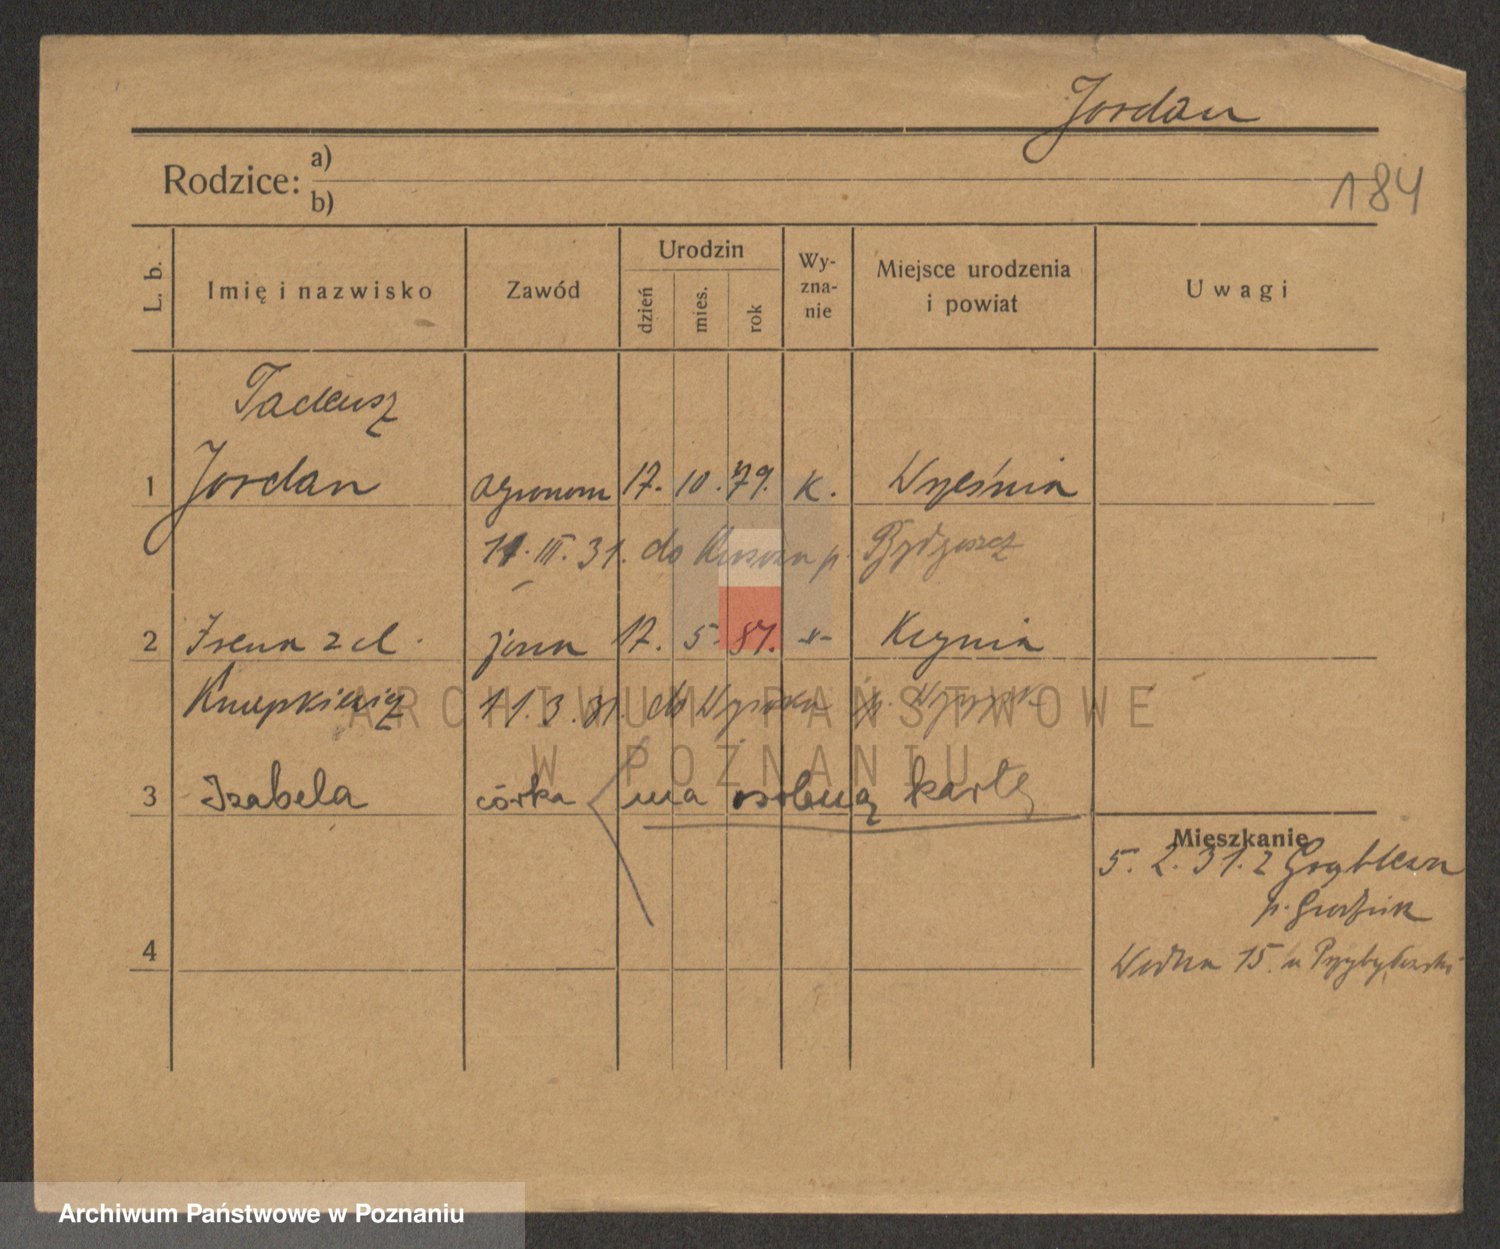 Jordan
Rodzice: a)
b)
184
L. b.
Imię i nazwisko
Zawód
Urodzin
dzień
mies.
rok
Wy-
zna-
nie
Miejsce urodzenia
i powiat
Uwagi
Tadeusz
1 Jordan agronom 17. 10. 79. K. Wyleśnia
11. III. 31. do p. Bydgoszcz
2 Irena z d. żona 17. 5. 87. -"- Kcynia
11. 3. 31. do Wysoka p. Wyrzysk
3 Izabela córka ma osobną kartę
Mieszkanie
5. 2. 31. z
p.
4
15. u
ARCHIWUM PAŃSTWOWE
W POZNANIU
Archiwum Państwowe w Poznaniu